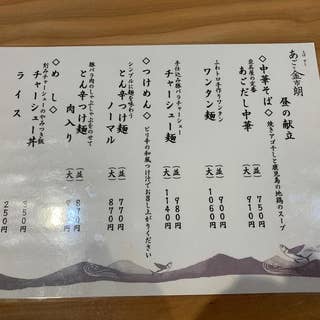 あご金朗
昼の献立
◇中華そば◇焼きアゴ干しと鹿児島の地鶏のスープ
金朗の定番
あごだし中華
(並) 750円
(大) 910円
ふわトロ手作りワンタン
ワンタン麺
(並) 900円
(大) 1060円
手仕込み豚バラチャーシュー
チャーシュー麺
(並) 980円
(大) 1140円
◇つけめん◇ピリ辛の和風つけ汁でお召し上がりください
シンプルに麺を味わう
とん辛つけ麺 ノーマル
(並) 770円
(大) 870円
豚バラ肉のしゃぶしゃぶをのせて
とん辛つけ麺 肉入り
(並) 870円
(大) 970円
◇めし◇
刻みチャーシューのやみつき飯
チャーシュー丼
350円
ライス
250円